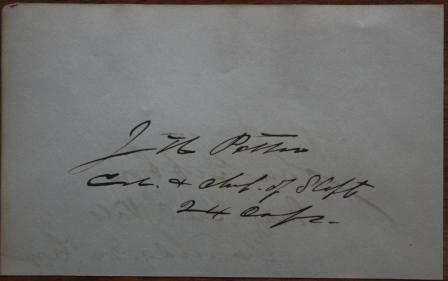 J H Potter
Col. & Chf. of Staff
24 Corps.